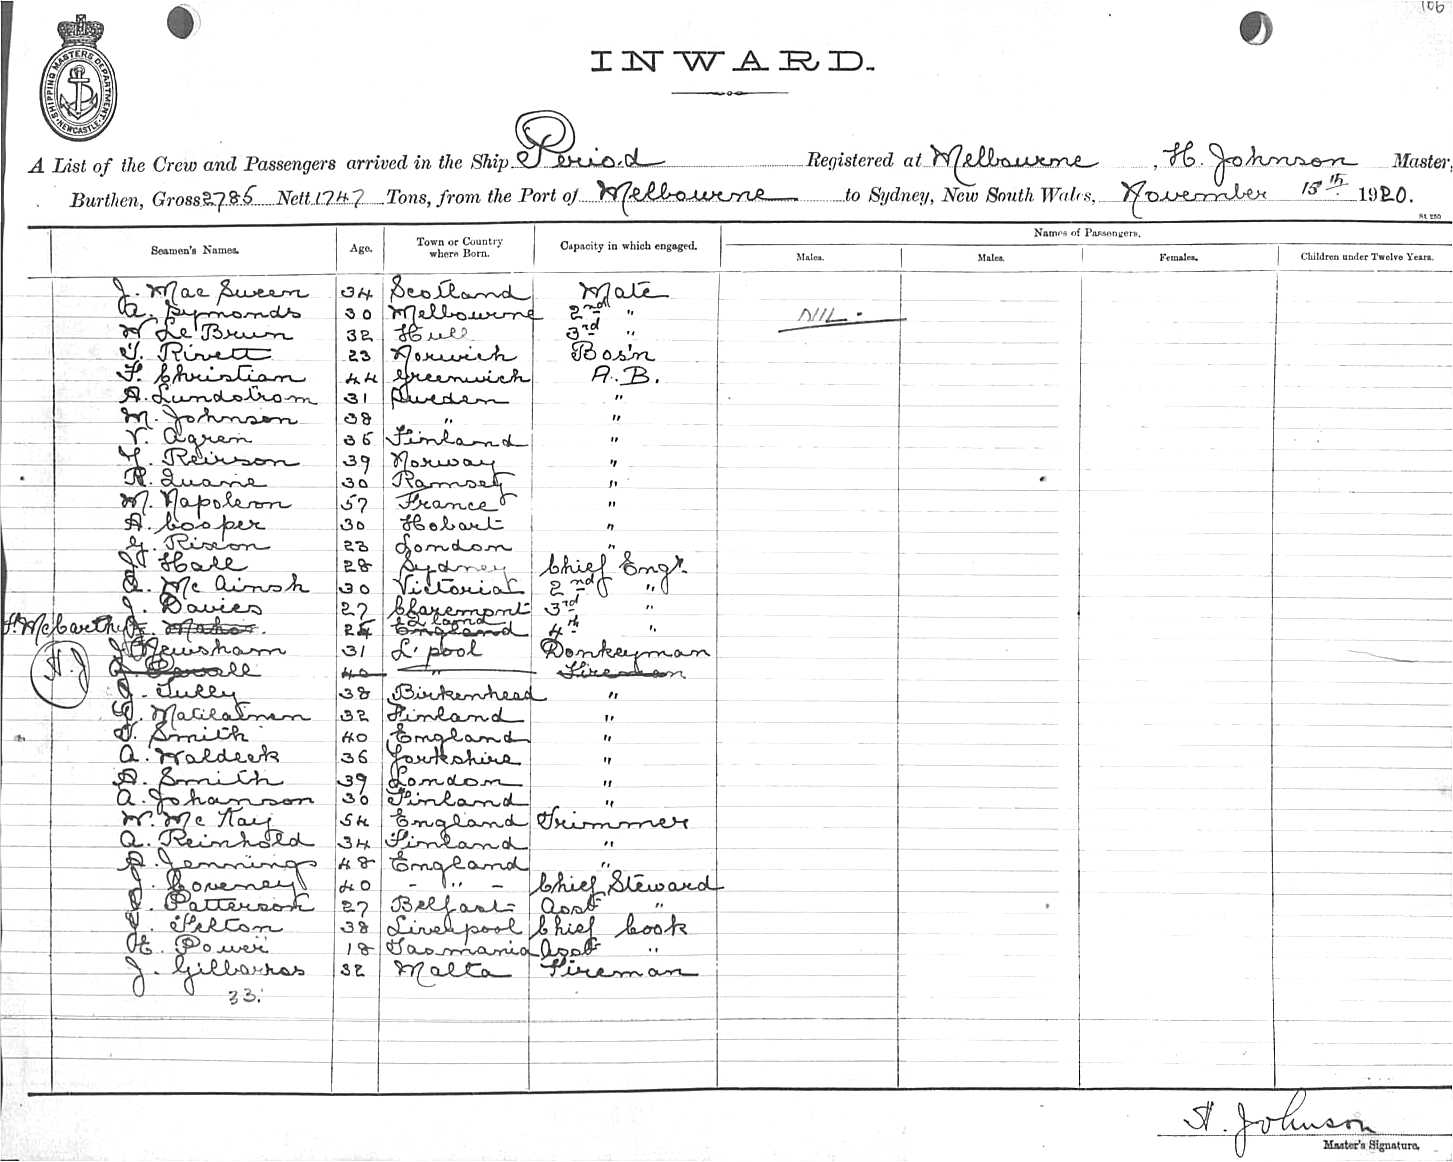 106
SHIPPING MASTERS DEPARTMENT. NEWCASTLE.
INWARD.
A List of the Crew and Passengers arrived in the Ship Period Registered at Melbourne, H. Johnson Master,
Burthen, Gross 2785 Nett 1747 Tons, from the Port of Melbourne to Sydney, New South Wales, November 15th 1920.
St. 250
Seamen's Names. Age. Town or Country where Born. Capacity in which engaged. Names of Passengers.
Males. Males. Females. Children under Twelve Years.
J. Mac Sween 34 Scotland Mate
A. Symonds 30 Melbourne 2nd " Nil.
W Le Brun 32 Hull 3rd "
T. Rivett 23 Norwich Bos'n
F. Christian 44 Greenwich A.B.
A. Lundstrom 31 Sweden "
M. Johnson 38 " "
V. Agren 36 Finland "
Reirson 39 Norway "
R. Quane 30 Ramsey "
M. Napoleon 57 France "
A. Cooper 30 Hobart "
G. Rixon 23 London "
J Hall 28 Sydney Chief Engr.
Mc Ainsh 30 Victoria 2nd "
J. Davies 27 Claremont 3rd "
McCarthy England 4th "
J Newsham 31 L'pool Donkeyman
H.J 40 " Fireman
J. Tully 38 Birkenhead "
32 Finland "
Smith 40 England "
A. Waldeck 36 Yorkshire "
A. Smith 39 London "
A. Johanson 30 Finland "
W. Mc Kay 54 England Trimmer
A. Reinhold 34 Finland "
A. Jennings 48 England "
J. Coverney 40 - " - Chief Steward
Patterson 27 Belfast Asst "
Felton 38 Liverpool Chief Cook
H. Power 18 Tasmania Asst "
J. Gilbarras 32 Malta Fireman
33.
H. Johnson
Master's Signature.